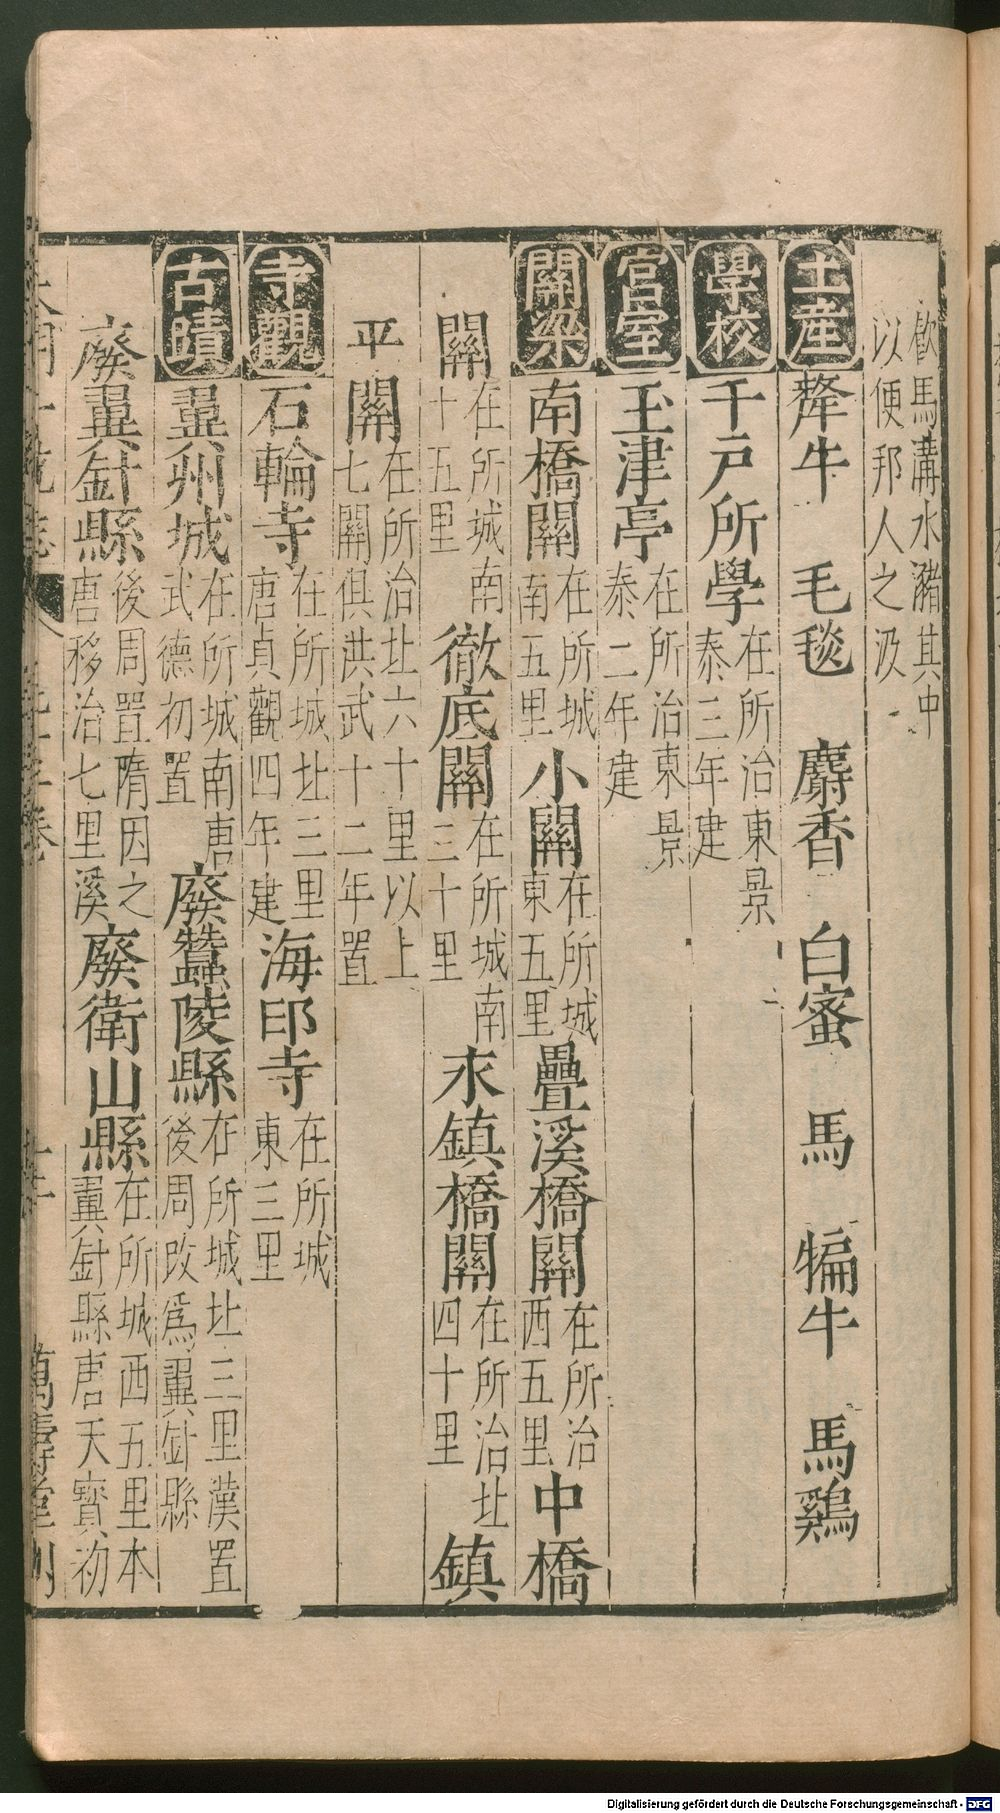 飲馬溝水瀦其中
以便邦人之汲
土産 犛牛 毛毯 麝香 白蜜 馬 犏牛 馬鷄
學校 千戸所學 在所治東景泰三年建
宮室 玉津亭 在所治東景泰二年建
關梁 南橋關 在所城南南五里 小關 在所城東五里 疊溪橋關 在所治西五里 中橋
關 在所城南十五里 徹底關 在所城南三十里 永鎮橋關 在所治北四十里 鎮
平關 在所治北六十里以上七關俱洪武十二年置
寺觀 石輪寺 在所城北三里唐貞觀四年建 海印寺 在所城東三里
古蹟 翼州城 在所城南唐武德初置 廢蠶陵縣 在所城北三里漢置後周改爲翼針縣
廢翼針縣 後周置隋因之唐移治七里溪 廢衛山縣 在所城西五里本翼針縣唐天寳初
萬壽堂刊
Digitalisierung gefördert durch die Deutsche Forschungsgemeinschaft - DFG